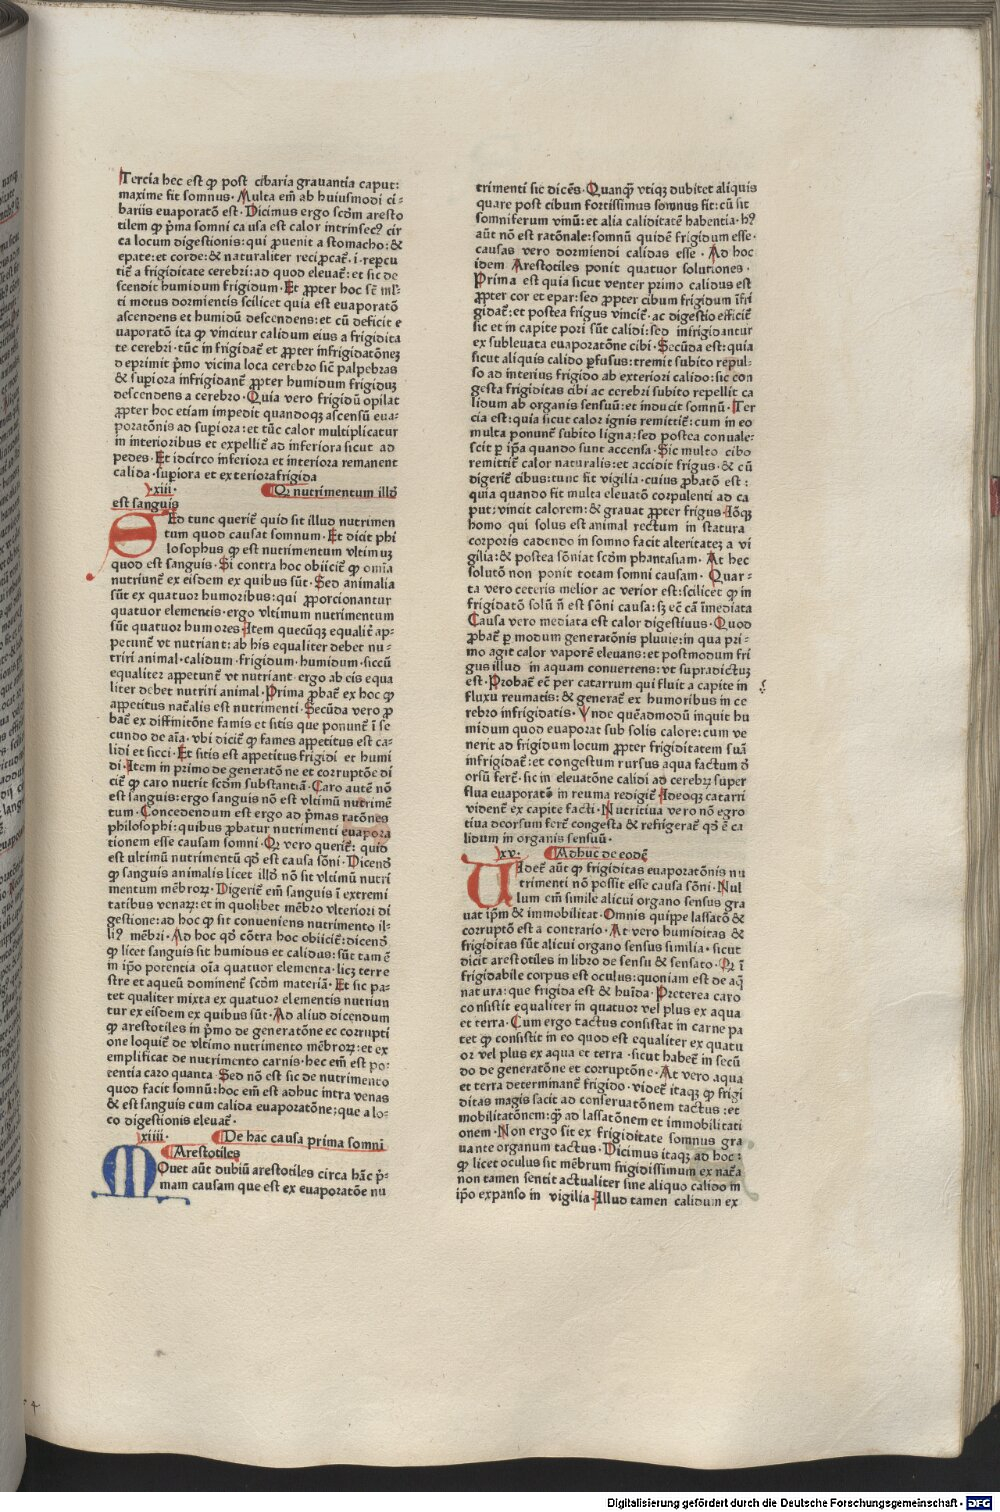 Tercia hec est ꝙ post cibaria grauantia caput:
maxime fit somnus. Multa em̄ ab huiusmodi ci-
bariis euaporatō est. Dicimus ergo scd̄m aresto
tilem ꝙ pr̄ma somni causa est calor intrinsecꝰ cir
ca locum digestionis: qui ꝓuenit a stomacho: &
epate: et corde: & naturaliter reciprocat᷑. i. repercu
tit᷑ a frigiditate cerebri: ad quod eleuat᷑: et sic de
scendit humidum frigidum. Et ꝓpter hoc sēt ml᷑
ti motus dormientis scilicet quia est euaporatō
ascendens et humidū descendens: et cū deficit e
uaporatō ita ꝙ vincitur calidum eius a frigidita
te cerebri. tūc infrigidat᷑ et ꝓpter infrigidatōneꝫ
deprimit pr̄mo vicina loca cerebro sic᷑ palpebras
& supiora infrigidant᷑ ꝓpter humidum frigiduꝫ
descendens a cerebro. Quia vero frigidū opilat
ꝓpter hoc etiam impedit quandoqꝫ ascensū eua-
poratōnis ad supiora: et tūc calor multiplicatur
in interioribus et expellit᷑ ad inferiora sicut ad
pedes. Et idcirco inferiora et interiora remanent
calida. supiora et exteriora frigida
.xiii. Qꝛ nutrimentum illd̄
est sanguis
Sed tunc querit᷑ quid sit illud nutrimen
tum quod causat somnum. Et dicit phi
losophus ꝙ est nutrimentum vltimuꝫ
quod est sanguis. Si contra hoc obiicit᷑ ꝙ omīa
nutriunt᷑ ex eisdem ex quibus sūt. Sed animalia
sūt ex quatuor humoribus: qui ꝓporcionantur
quatuor elementis. ergo vltimum nutrimentum
sūt quatuor humores. Item quecūqꝫ equalit᷑ ap-
petunt᷑ vt nutriant: ab his equaliter debet nu-
triri animal. calidum. frigidum. humidum. siccū
equaliter appetunt᷑ vt nutriant. ergo ab eis equa
liter debet nutriri animal. Prima ꝓbat᷑ ex hoc ꝙ
appetitus nat᷑alis est nutrimenti. Secūda vero ꝓ
bat᷑ ex diffinitōne famis et sitis que ponunt᷑ ī se
cundo de aīa. vbi dicit᷑ ꝙ fames appetitus est ca-
lidi et sicci. Et sitis est appetitus frigidi et humi
di. Item in primo de generatōne et corruptōe di
cit᷑ ꝙ caro nutrit scd̄m substantiā. Caro autē nō
est sanguis: ergo sanguis nō est vltimū nutrimē
tum. Concedendum est ergo ad pr̄mas ratōnes
philosophi: quibus ꝓbatur nutrimenti euapora
tionem esse causam somni. Qꝛ vero querit᷑: quid
est vltimū nutrimentū qd̄ est causa sōni. Dicend̄
ꝙ sanguis animalis licet illd̄ nō sit vltimū nutri
mentum mēbroꝝ. Digerit᷑ em̄ sanguis ī extremi
tatibus venaꝝ: et in quolibet mēbro vlteriori di
gestione: ad hoc ꝙ sit conueniens nutrimento il-
liꝰ mēbri. Ad hoc qd̄ cōtra hoc obiicit᷑: dicend̄
ꝙ licet sanguis sit humidus et calidus: sūt tam ē
in ipō potentia oīa quatuor elementa. licꝫ terre
stre et aqueū dominent᷑ scd̄m materiā. Et sic pa-
tet qualiter mixta ex quatuor elementis nutriun
tur ex eisdem ex quibus sūt. Ad aliud dicendum
ꝙ arestotiles in pr̄mo de generatōne et corrupti
one loquit᷑ de vltimo nutrimento mēbroꝝ: et ex
emplificat de nutrimento carnis. hec em̄ est po-
tentia caro quanta. Sed nō est sic de nutrimento
quod facit somnū: hoc em̄ est adhuc intra venas
& est sanguis cum calida euaporatōne; que a lo-
co digestionis eleuat᷑.
.xiiii. De hac causa prima somni
Arestotiles
Mouet aūt dubiū arestotiles circa hāc pr̄-
mam causam que est ex euaporatōe nu
trimenti sic dicēs. Quanqꝫ vtiqꝫ dubitet aliquis
quare post cibum fortissimus somnus fit: cū sit
somniferum vinū: et alia caliditatē habentia. hꝰ
aūt nō est ratōnale: somnū quidē frigidum esse.
causas vero dormiendi calidas esse. Ad hoc
idem Arestotiles ponit quatuor solutiones.
Prima est quia sicut venter primo calidus est
ꝓpter cor et epar: sed ꝓpter cibum frigidum īfri
gidat᷑: et postea frigus vincit᷑. ac digestio efficit᷑
sic et in capite pori sūt calidi: sed infrigidantur
ex subleuata euaporatōne cibi. Secūda est: quia
sicut aliquis calido ꝑfusus: tremit subito repul-
so ad interius frigido ab exteriori calido: sic con
gesta frigiditas cibi ac cerebri subito repellit ca
lidum ab organis sensuū: et inducit somnū. Ter
cia est: quia sicut calor ignis remittit᷑: cum in eo
multa ponunt᷑ subito ligna: sed postea conuale-
scit ꝑ ip̄a quando sunt accensa. Sic multo cibo
remittit᷑ calor naturalis: et accidit frigus. & cū
digerit᷑ cibus: tunc fit vigilia. cuius ꝓbatō est:
quia quando fit multa eleuatō corpulenti ad ca
put: vincit calorem: & grauat ꝓpter frigus. Iō̄qꝫ
homo qui solus est animal rectum in statura
corporis cadendo in somno facit alteritateꝫ a vi
gilia: & postea sōniat scd̄m phantasiam. At hec
solutō non ponit totam somni causam. Quar-
ta vero ceteris melior ac verior est: scilicet ꝙ in
frigidatō solū ñ est sōni causa: sꝫ eē cā īmediata
Causa vero mediata est calor digestiuus. Quod
ꝓbat᷑ ꝑ modum generatōnis pluuie: in qua pri-
mo agit calor vaporē eleuans: et postmodum fri
gus illud in aquam conuertens: vt supradictuꝫ
est. Probat᷑ eē per catarrum qui fluit a capite in
fluxu reumatis: & generat᷑ ex humoribus in ce
rebro infrigidatis. Vnde quēadmodū inquit hu
midum quod euaporat sub solis calore: cum ve
nerit ad frigidum locum ꝓpter frigiditatem suā
infrigidat᷑: et congestum rursus aqua factum d̄
orsū fert᷑. sic in eleuatōne calidi ad cerebꝝ super
flua euaporatō in reuma redigit᷑. Ideoqꝫ catarri
vident᷑ ex capite facti. Nutritiua vero nō egro
tiua deorsum fert᷑ congesta & refrigerat᷑ qd̄ ē ca
lidum in organis sensuū.
.xv. Adhuc de eodē
Uidet᷑ aūt ꝙ frigiditas euaporatōnis nu
trimenti nō possit esse causa sōni. Nul
lum em̄ simile alicui organo sensus gra
uat ip̄m & immobilitat. Omnis quippe lassatō &
corruptō est a contrario. At vero humiditas &
frigiditas sūt alicui organo sensus similia. sicut
dicit arestotiles in libro de sensu & sensato. Qꝛ ī
frigidabile corpus est oculus: quoniam est de aq̄
natura: que frigida est & huīda. Preterea caro
consistit equaliter in quatuor vel plus ex aqua
et terra. Cum ergo tactus consistat in carne pa
tet ꝙ consistit in eo quod est equaliter ex quatu
or vel plus ex aqua et terra. sicut habet᷑ in secū
do de generatōne et corruptōne. At vero aqua
et terra determinant᷑ frigido. videt᷑ itaqꝫ ꝙ frigi
ditas magis faciat ad conseruatōnem tactus: et
mobilitatōnem: ꝙ̄ ad lassatōnem et immobilitati
onem. Non ergo sit ex frigiditate somnus gra
uante organum tactus. Dicimus itaqꝫ ad hoc:
ꝙ licet oculus sit mēbrum frigidissimum ex nat᷑a
non tamen sentit actualiter sine aliquo calido in
ip̄o expanso in vigilia. Illud tamen calidum ex
Digitalisierung gefördert durch die Deutsche Forschungsgemeinschaft - DFG